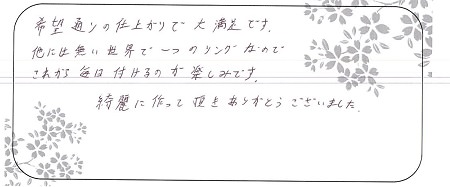 希望通りの仕上がりで大満足です。
他には無い世界で一つのリングなので
これから毎日付けるのが楽しみです。
綺麗に作って頂きありがとうございました。